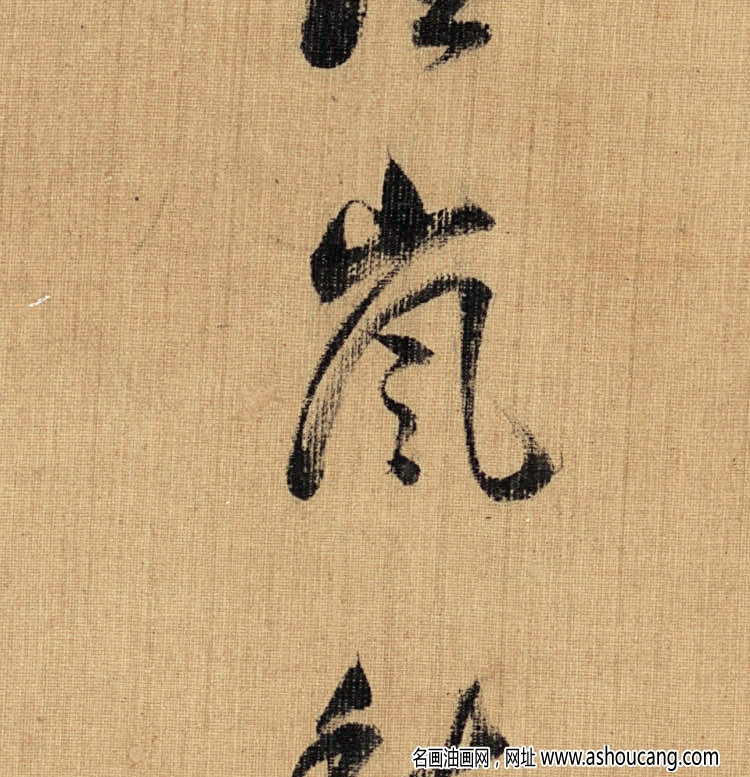 嵐
名画油画网，网址 www.ashoucang.com